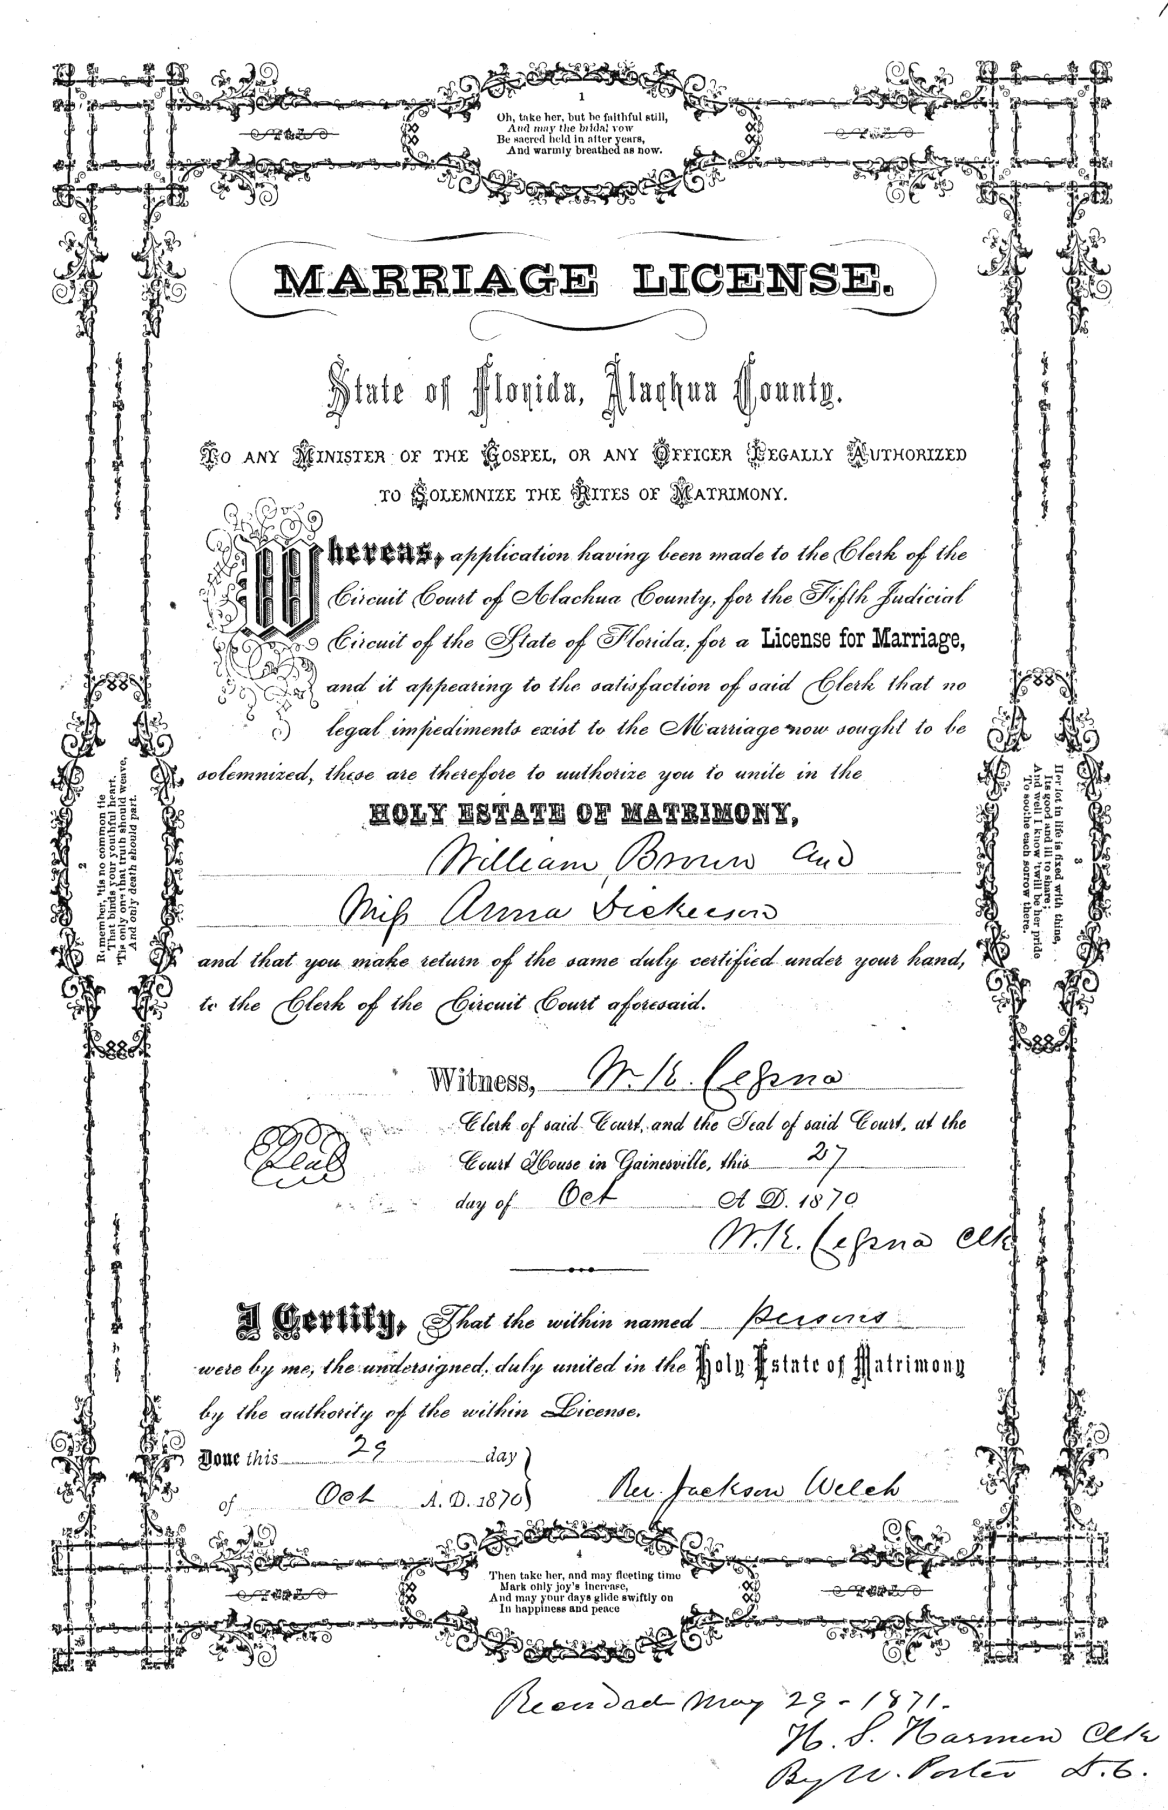 1
Oh, take her, but be faithful still,
And may the bridal vow
Be sacred held in after years,
And warmly breathed as now.
MARRIAGE LICENSE.
State of Florida, Alachua County.
TO ANY MINISTER OF THE GOSPEL, OR ANY OFFICER LEGALLY AUTHORIZED
TO SOLEMNIZE THE RITES OF MATRIMONY.
Whereas, application having been made to the Clerk of the
Circuit Court of Alachua County, for the Fifth Judicial
Circuit of the State of Florida, for a License for Marriage,
and it appearing to the satisfaction of said Clerk that no
legal impediments exist to the Marriage now sought to be
solemnized, these are therefore to authorize you to unite in the
HOLY ESTATE OF MATRIMONY,
William Brown and
Miss Anna Dickerson
and that you make return of the same duly certified under your hand,
to the Clerk of the Circuit Court aforesaid.
Witness, W. K. Cessna
Clerk of said Court, and the Seal of said Court, at the
Seal
Court House in Gainesville, this 27
day of Oct A. D. 1870
W. K. Cessna Clk
I Certify, That the within named persons
were by me, the undersigned, duly united in the Holy Estate of Matrimony
by the authority of the within License.
Done this 29 day
of Oct A. D. 1870
Rev. Jackson Welch
2
Remember, 'tis no common tie
That binds your youthful heart,
'Tis only one that truth should weave,
And only death should part.
3
Her lot in life is fixed with thine,
Its good and ill to share;
And well I know 'twill be her pride
To soothe each sorrow there.
4
Then take her, and may fleeting time
Mark only joy's increase,
And may your days glide swiftly on
In happiness and peace
Recorded May 29 - 1871.
H. S. Harmon Clk
By W. Porter D. C.